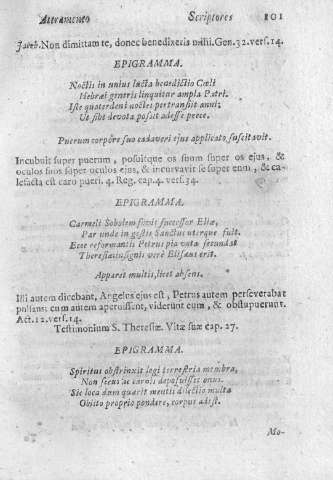 Atiramento Scriptores 101
Jacob. Non dimittam te, donec benedixeris mihi. Gen. 32. vers. 14.
EPIGRAMMA.
Noctis in unius lucta benedictio Cœli
Hebræi generis linquitur ampla Patri.
Iste quaterdeni noctes pertransit anni;
Ut sibi devota possit adesse prece.
Puerum corpore suo cadaveri ejus applicato suscitavit.
Incubuit super puerum, posuitque os suum super os ejus, &
oculos suos super oculos ejus, & incurvavit se super eum, & ca-
lefacta est caro pueri. 4. Reg. cap. 4. vers. 34.
EPIGRAMMA.
Carmeli Sobolem successor Eliæ,
Par unde in gestis Sanctus uterque fuit.
Ecce reformantis Petrus pia vota secundat
Theresiæ insigni verè Elisæus erit.
Apparet multis, licet absens.
Illi autem dicebant, Angelus ejus est, Petrus autem perseverabat
pulsans: cum autem aperuissent, viderunt eum, & obstupuerunt.
Act. 12. vers. 14.
Testimonium S. Theresiæ. Vitæ suæ cap. 27.
EPIGRAMMA.
Spiritus obstrinxit legi terrestria membra,
Non secus ac carnis deposuisset onus.
Sic loca dum quærit mentis dilectio multa
Obiito proprio pondere, corpus adest.
Mo-